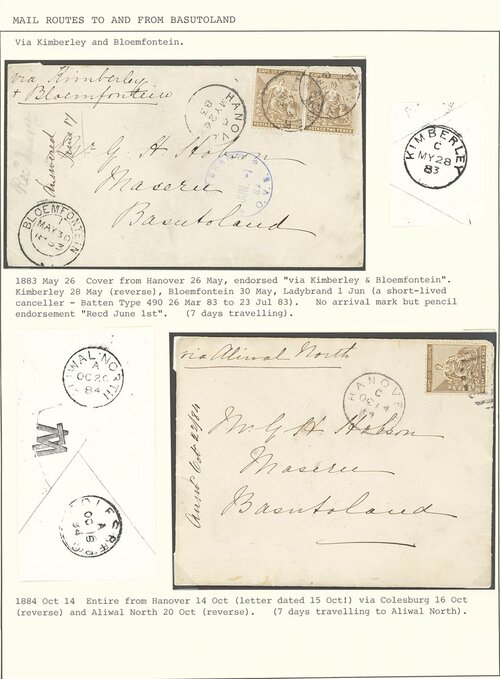 MAIL ROUTES TO AND FROM BASUTOLAND
Via Kimberley and Bloemfontein.
via Kimberley
& Bloemfontein
HANOVER
MY 26
83
Answered
June 17
G H Hobson
Maseru
Basutoland
BLOEMFONTEIN
MAY 30
1883
KIMBERLEY
C
MY 28
83
1883 May 26 Cover from Hanover 26 May, endorsed "via Kimberley & Bloemfontein".
Kimberley 28 May (reverse), Bloemfontein 30 May, Ladybrand 1 Jun (a short-lived
canceller - Batten Type 490 26 Mar 83 to 23 Jul 83). No arrival mark but pencil
endorsement "Recd June 1st". (7 days travelling).
ALIWAL NORTH
A
OC 20
84
via Aliwal North
HANOVER
C
OC 14
84
Mr G H Hobson
Maseru
Basutoland
1884 Oct 14 Entire from Hanover 14 Oct (letter dated 15 Oct!) via Colesburg 16 Oct
(reverse) and Aliwal North 20 Oct (reverse). (7 days travelling to Aliwal North).